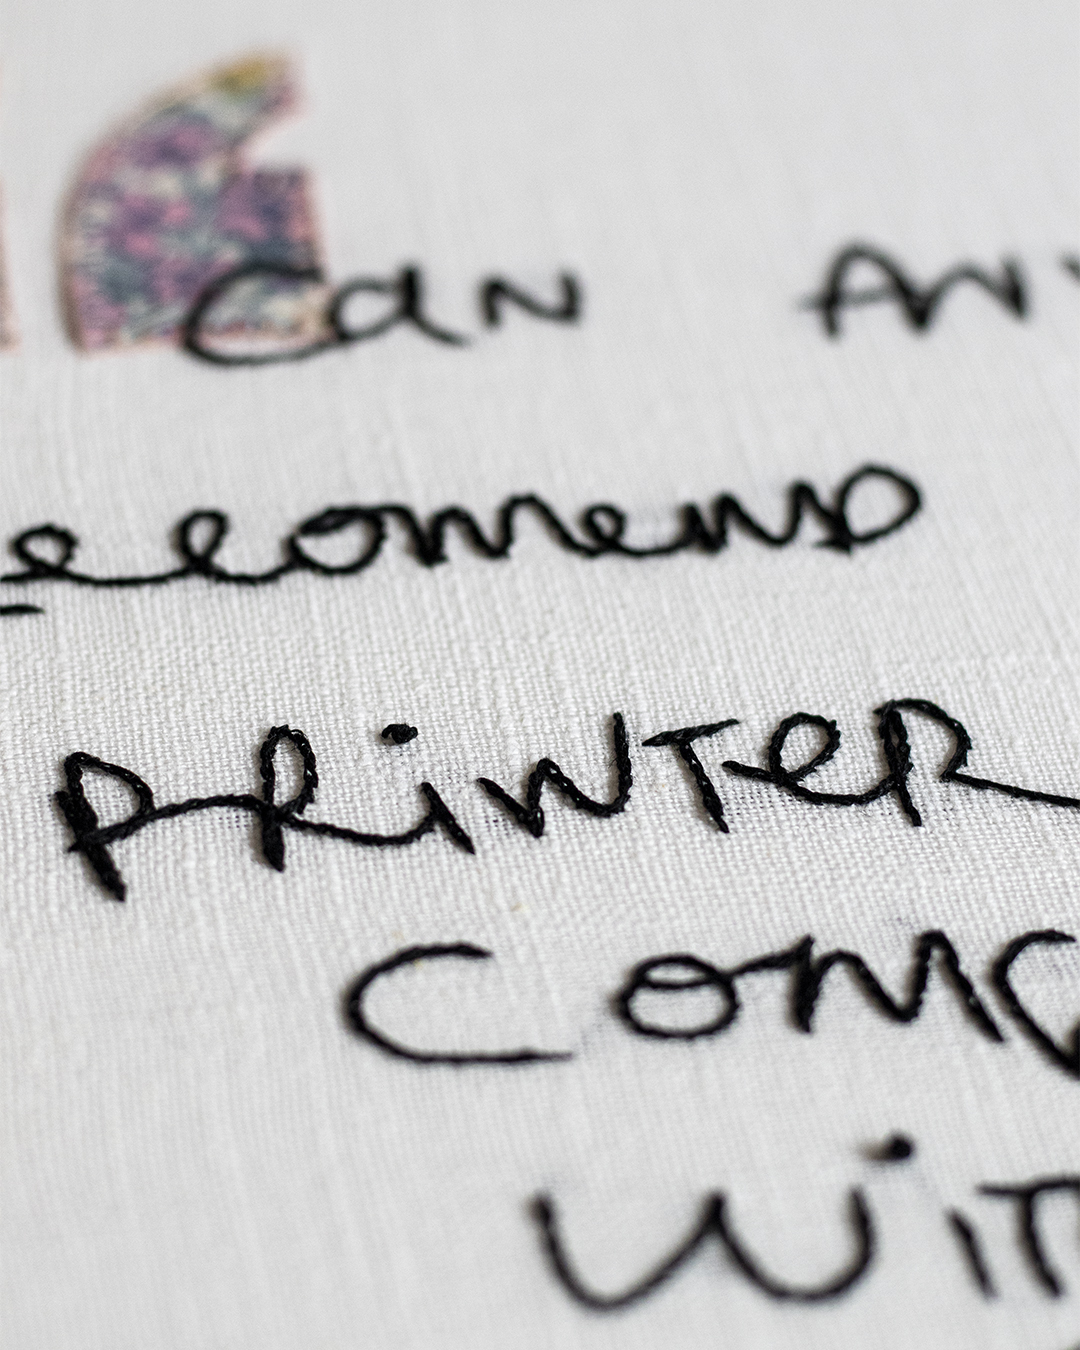 CaN ANY
ecomenD
PRiNTeR
Com
WiT